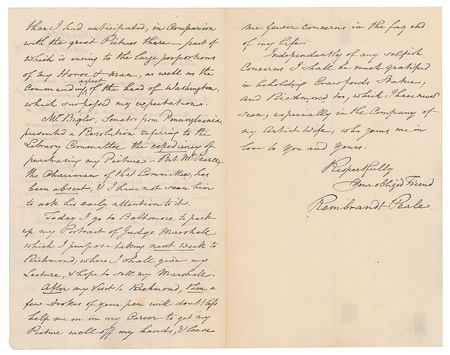 than I had anticipated, in Comparison
with the great Pictures there — part of
which is owing to the large proportions
of my Horse & man, as well as the
aspect
Commanding of the head of Washington,
which surpassed my expectations.
Mr. Bigler, Senator from Pennsylvania
presented a Resolution referring to the
Library Committee the expediency of
purchasing my Picture. But Mr. Pearce,
the Chairman of that Committee, has
been absent, & I have not seen him
to ask his early attention to it.
Today I go to Baltimore to pack
up my Portrait of Judge Marshall
which I purpose taking next week to
Richmond, where I shall give my
Lecture, & hope to sell my Marshall.
After my visit to Richmond, then a
few strokes of your pen will doubtless
help me on in my Career to get my
Picture well off my hands, & leave
me fewer concerns in the fag end
of my life.
Independently of any selfish
Concerns I shall be much gratified
in beholding Crawford's Statue,
and Richmond too, which I have never
seen, especially in the Company of
my Artist Wife, who joins me in
love to you and yours.
Respectfully
Your oblig'd Friend
Rembrandt Peale